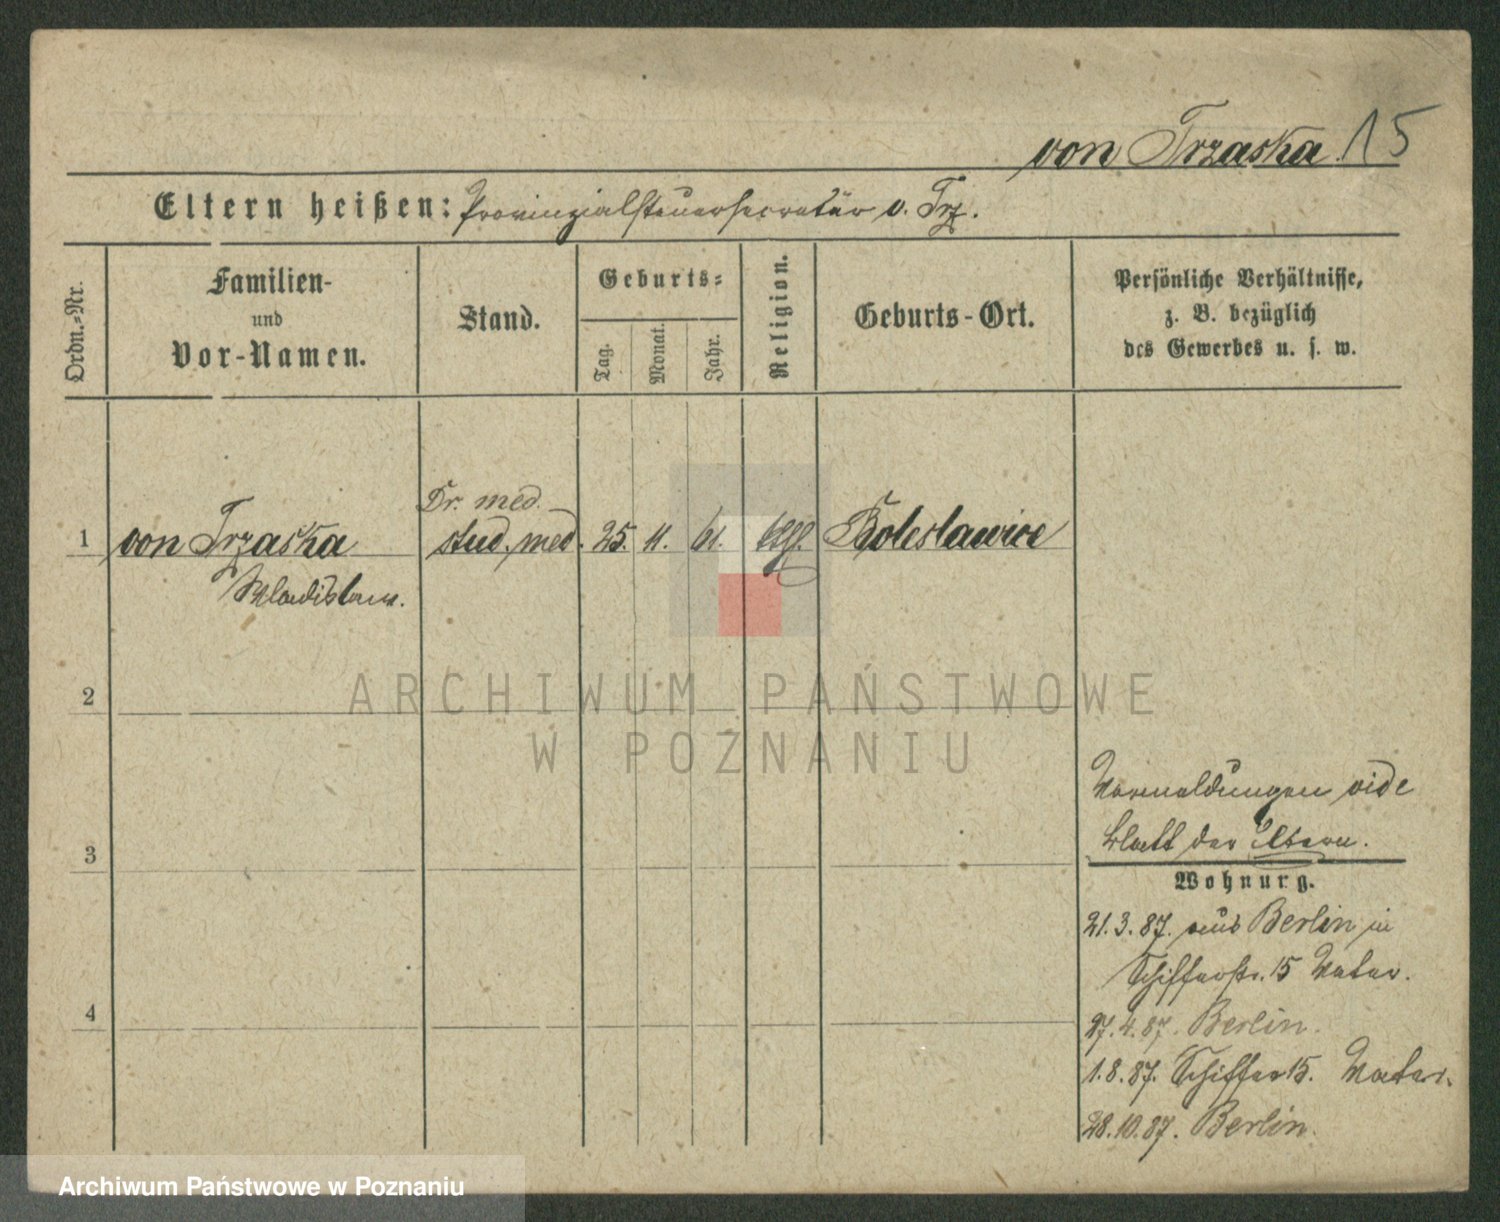 von Trzaska. 15
Eltern heißen: Provinzialsteuersecretär v. Trz.
Ordn.-Nr.
Familien-
und
Vor-Namen.
Stand.
Geburts-
Tag.
Monat.
Jahr.
Religion.
Geburts-Ort.
Persönliche Verhältnisse,
z. B. bezüglich
des Gewerbes u. s. w.
Dr. med.
1 von Trzaska stud. med. 25. 11. 61. kth. Boleslawice
Wladislaus.
2
ARCHIWUM PAŃSTWOWE
W POZNANIU
Vormeldungen vide
3 Blatt der Eltern.
Wohnung.
21.3.87. aus Berlin in
Schifferstr. 15 Vater.
4 27.4.87. Berlin.
1.8.87. Schiffer 15. Vater.
28.10.87. Berlin.
Archiwum Państwowe w Poznaniu